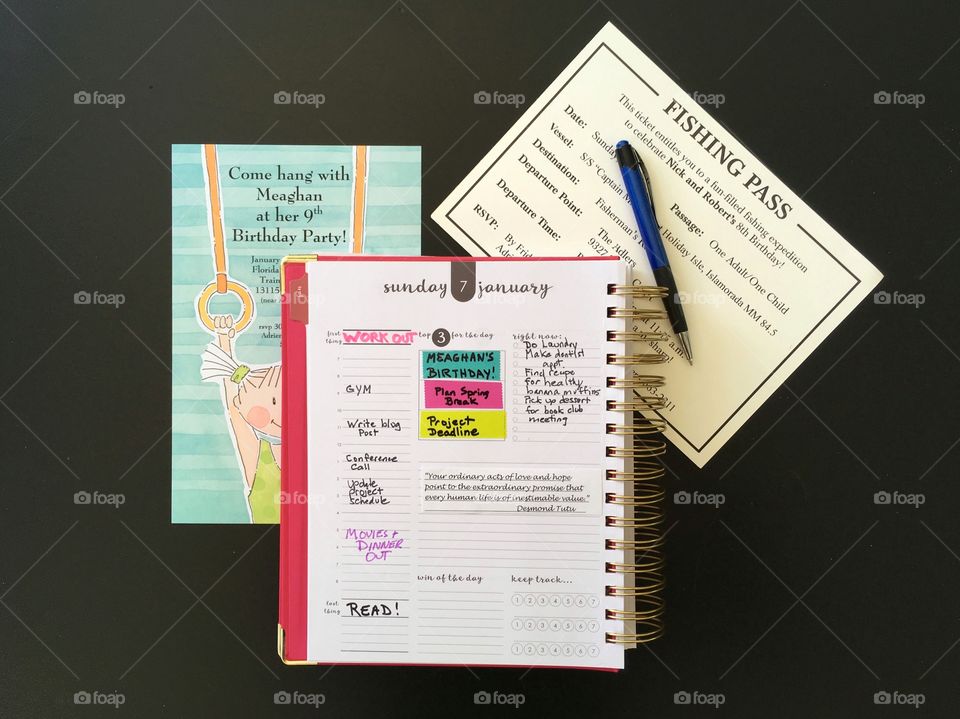 Come hang with
Meaghan
at her 9th
Birthday Party!
January
Florida
Train
13115
(near
rsvp 30
Adrie
FISHING PASS
This ticket entitles you to a fun-filled fishing expedition
to celebrate Nick and Robert's 8th Birthday!
Passage: One Adult/One Child
Date: Sunda
Vessel: S/S "Captain M
Destination: Fisherman's
Holiday Isle, Islamorada MM 84.5
Departure Point: The Adlers
9327
Departure Time:
RSVP: By Frid
sunday 7 january
first thing
WORK OUT
top 3 for the day
MEAGHAN'S
BIRTHDAY!
Plan Spring
Break
Project
Deadline
right now:
Do Laundry
Make dentist
appt.
Find recipe
for healthy
banana muffins
Pick up dessert
for book club
meeting
GYM
Write blog
Post
Conference
Call
Update
Project
Schedule
MOVIES +
DINNER
OUT
last thing
READ!
"Your ordinary acts of love and hope
point to the extraordinary promise that
every human life is of inestimable value."
Desmond Tutu
win of the day
keep track...
1 2 3 4 5 6 7
1 2 3 4 5 6 7
1 2 3 4 5 6 7
foap